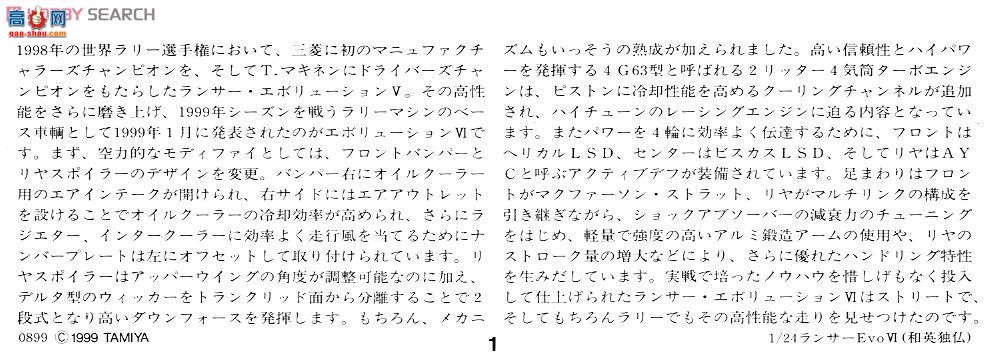 HOBBY SEARCH
高手网
gao-shou.com
1998年の世界ラリー選手権において、三菱に初のマニュファクチ
ャラーズチャンピオンを、そしてT.マキネンにドライバーズチャ
ンピオンをもたらしたランサー・エボリューションⅤ。その高性
能をさらに磨き上げ、1999年シーズンを戦うラリーマシンのベー
ス車輌として1999年1月に発表されたのがエボリューションⅥで
す。まず、空力的なモディファイとしては、フロントバンパーと
リヤスポイラーのデザインを変更。バンパー右にオイルクーラー
用のエアインテークが開けられ、右サイドにはエアアウトレット
を設けることでオイルクーラーの冷却効率が高められ、さらにラ
ジエター、インタークーラーに効率よく走行風を当てるためにナ
ンバープレートは左にオフセットして取り付けられています。リ
ヤスポイラーはアッパーウイングの角度が調整可能なのに加え、
デルタ型のウィッカーをトランクリッド面から分離することで2
段式となり高いダウンフォースを発揮します。もちろん、メカニ
ズムもいっそうの熟成が加えられました。高い信頼性とハイパワ
ーを発揮する4G63型と呼ばれる2リッター4気筒ターボエンジ
ンは、ピストンに冷却性能を高めるクーリングチャンネルが追加
され、ハイチューンのレーシングエンジンに迫る内容となってい
ます。またパワーを4輪に効率よく伝達するために、フロントは
ヘリカルLSD、センターはビスカスLSD、そしてリヤはAY
Cと呼ぶアクティブデフが装備されています。足まわりはフロン
トがマクファーソン・ストラット、リヤがマルチリンクの構成を
引き継ぎながら、ショックアブソーバーの減衰力のチューニング
をはじめ、軽量で強度の高いアルミ鍛造アームの使用や、リヤの
ストローク量の増大などにより、さらに優れたハンドリング特性
を生みだしています。実戦で培ったノウハウを惜しげもなく投入
して仕上げられたランサー・エボリューションⅥはストリートで、
そしてもちろんラリーでもその高性能な走りを見せつけたのです。
0899 ©1999 TAMIYA
1
1/24ランサーEvoⅥ(和英独仏)